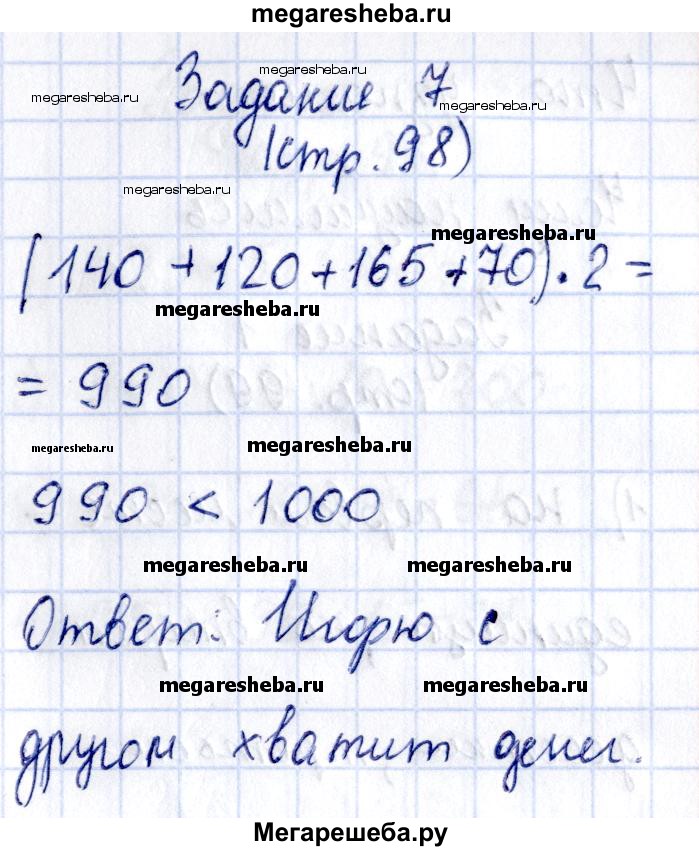 megaresheba.ru
megaresheba.ru
megaresheba.ru Задание 7 megaresheba.ru
(стр. 98)
megaresheba.ru
megaresheba.ru
(140 + 120 + 165 + 70) · 2 =
megaresheba.ru
= 990
megaresheba.ru megaresheba.ru
990 < 1000
megaresheba.ru megaresheba.ru
Ответ: Игорю с
megaresheba.ru megaresheba.ru
другом хватит денег.
Мегарешеба.ру